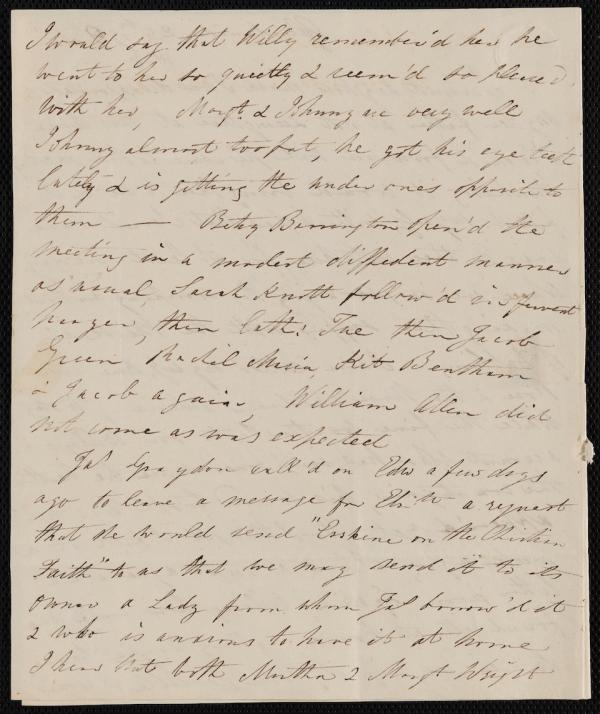 I would say that Willy remember'd her he
went to her so quietly & seem'd so pleased
with her, Margt. & Johnny are very well
Johnny almost too fat, he got his eye teeth
lately & is getting the under ones opposite to
them — Betsy Barrington open'd the
meeting in a modest diffident manner
as usual, Sarah Knott follow'd in fervent
prayer, then then Jacob
Green Rachel Maria Kit Bentham
& Jacob again, William Allen did
not come as was expected
Jas Graydon call'd on Edw a few days
ago to leave a message for Eliz th a request
that she would send "Erskine on the Christian
Faith" to us that we may send it to its
owner a Lady from whom Jas borrow'd it
& who is anxious to have it at home
I hear that both Martha & Margt Wright